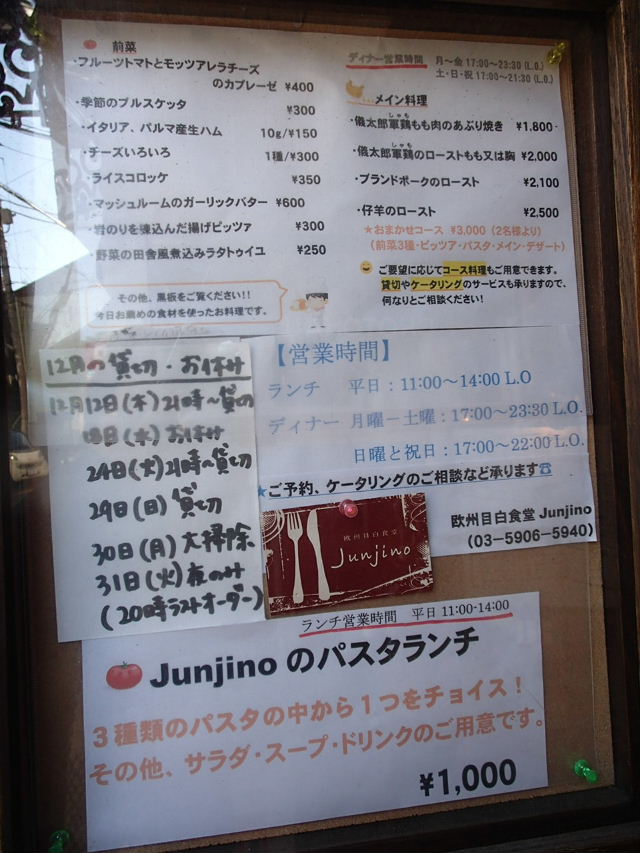 前菜
・フルーツトマトとモッツアレラチーズ
のカプレーゼ ¥400
・季節のブルスケッタ ¥300
・イタリア、パルマ産生ハム 10g/¥150
・チーズいろいろ 1種/¥300
・ライスコロッケ ¥350
・マッシュルームのガーリックバター ¥600
・岩のりを練込んだ揚げピッツァ ¥300
・野菜の田舎風煮込みラタトゥイユ ¥250
その他、黒板をご覧ください!!
今日お薦めの食材を使ったお料理です。
ディナー営業時間 月～金 17:00～23:30 (L.O.)
土・日・祝 17:00～21:30 (L.O.)
…メイン料理
しゃも
・儀太郎軍鶏もも肉のあぶり焼き ¥1,800
しゃも
・儀太郎軍鶏のローストもも又は胸 ¥2,000
・ブランドポークのロースト ¥2,100
・仔羊のロースト ¥2,500
★おまかせコース ¥3,000 (2名様より)
(前菜3種・ピッツア・パスタ・メイン・デザート)
ご要望に応じてコース料理もご用意できます。
貸切やケータリングのサービスも承りますので、
何なりとご相談ください!
12月の貸切・お休み
12月12日(木)21時～貸切
18日(水)お休み
24日(火)21時～貸切
29日(日)貸切
30日(月)大掃除
31日(火)夜のみ
(20時ラストオーダー)
【営業時間】
ランチ 平日：11:00～14:00 L.O
ディナー 月曜－土曜：17:00～23:30 L.O.
日曜と祝日：17:00～22:00 L.O.
★ご予約、ケータリングのご相談など承ります☎
欧州目白食堂 Junjino
(03-5906-5940)
欧州目白食堂
Junjino
ランチ営業時間 平日 11:00-14:00
Junjino のパスタランチ
３種類のパスタの中から１つをチョイス！
その他、サラダ・スープ・ドリンクのご用意です。
¥1,000